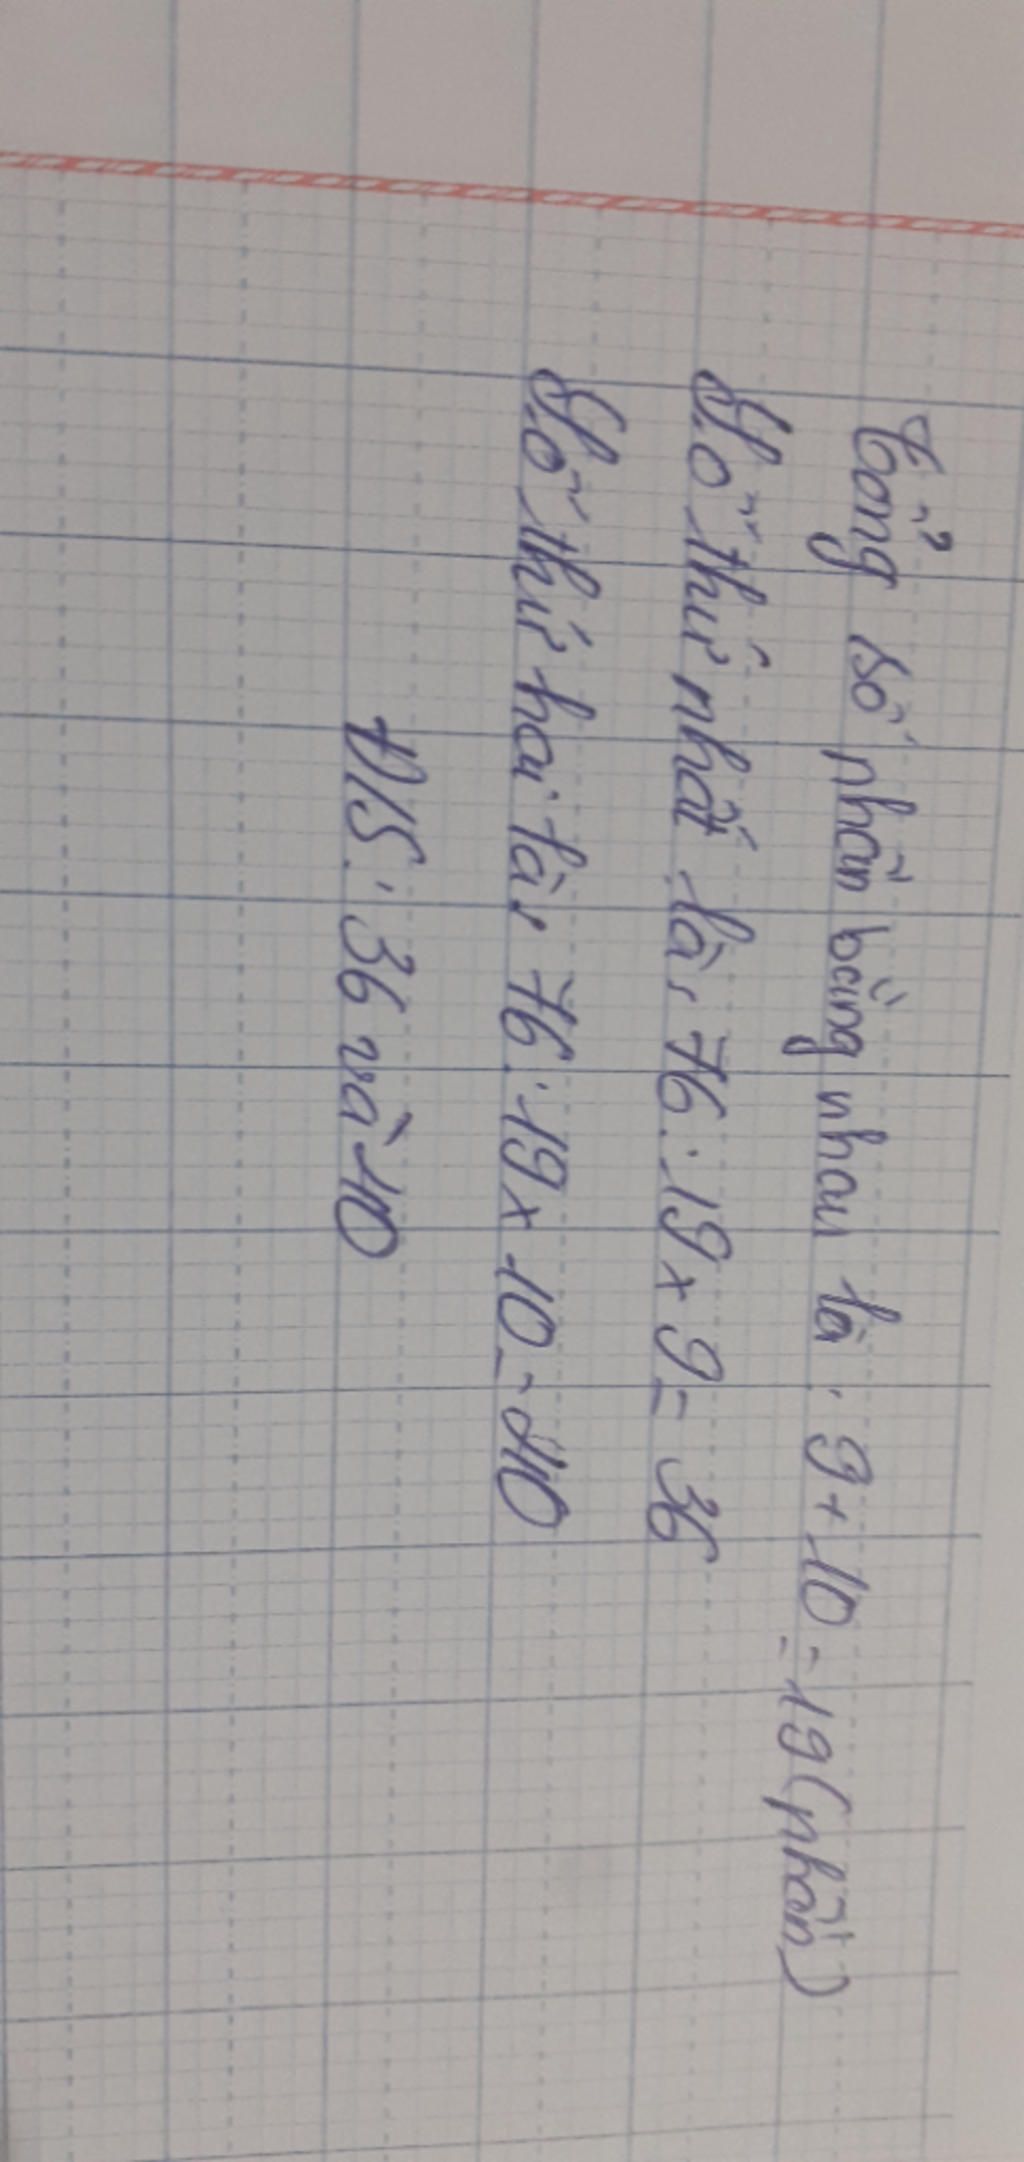 Tổng số phần bằng nhau là: 9 + 10 = 19 (phần)
Số thứ nhất là: 76 : 19 x 9 = 36
Số thứ hai là: 76 : 19 x 10 = 40
Đ/S: 36 và 40